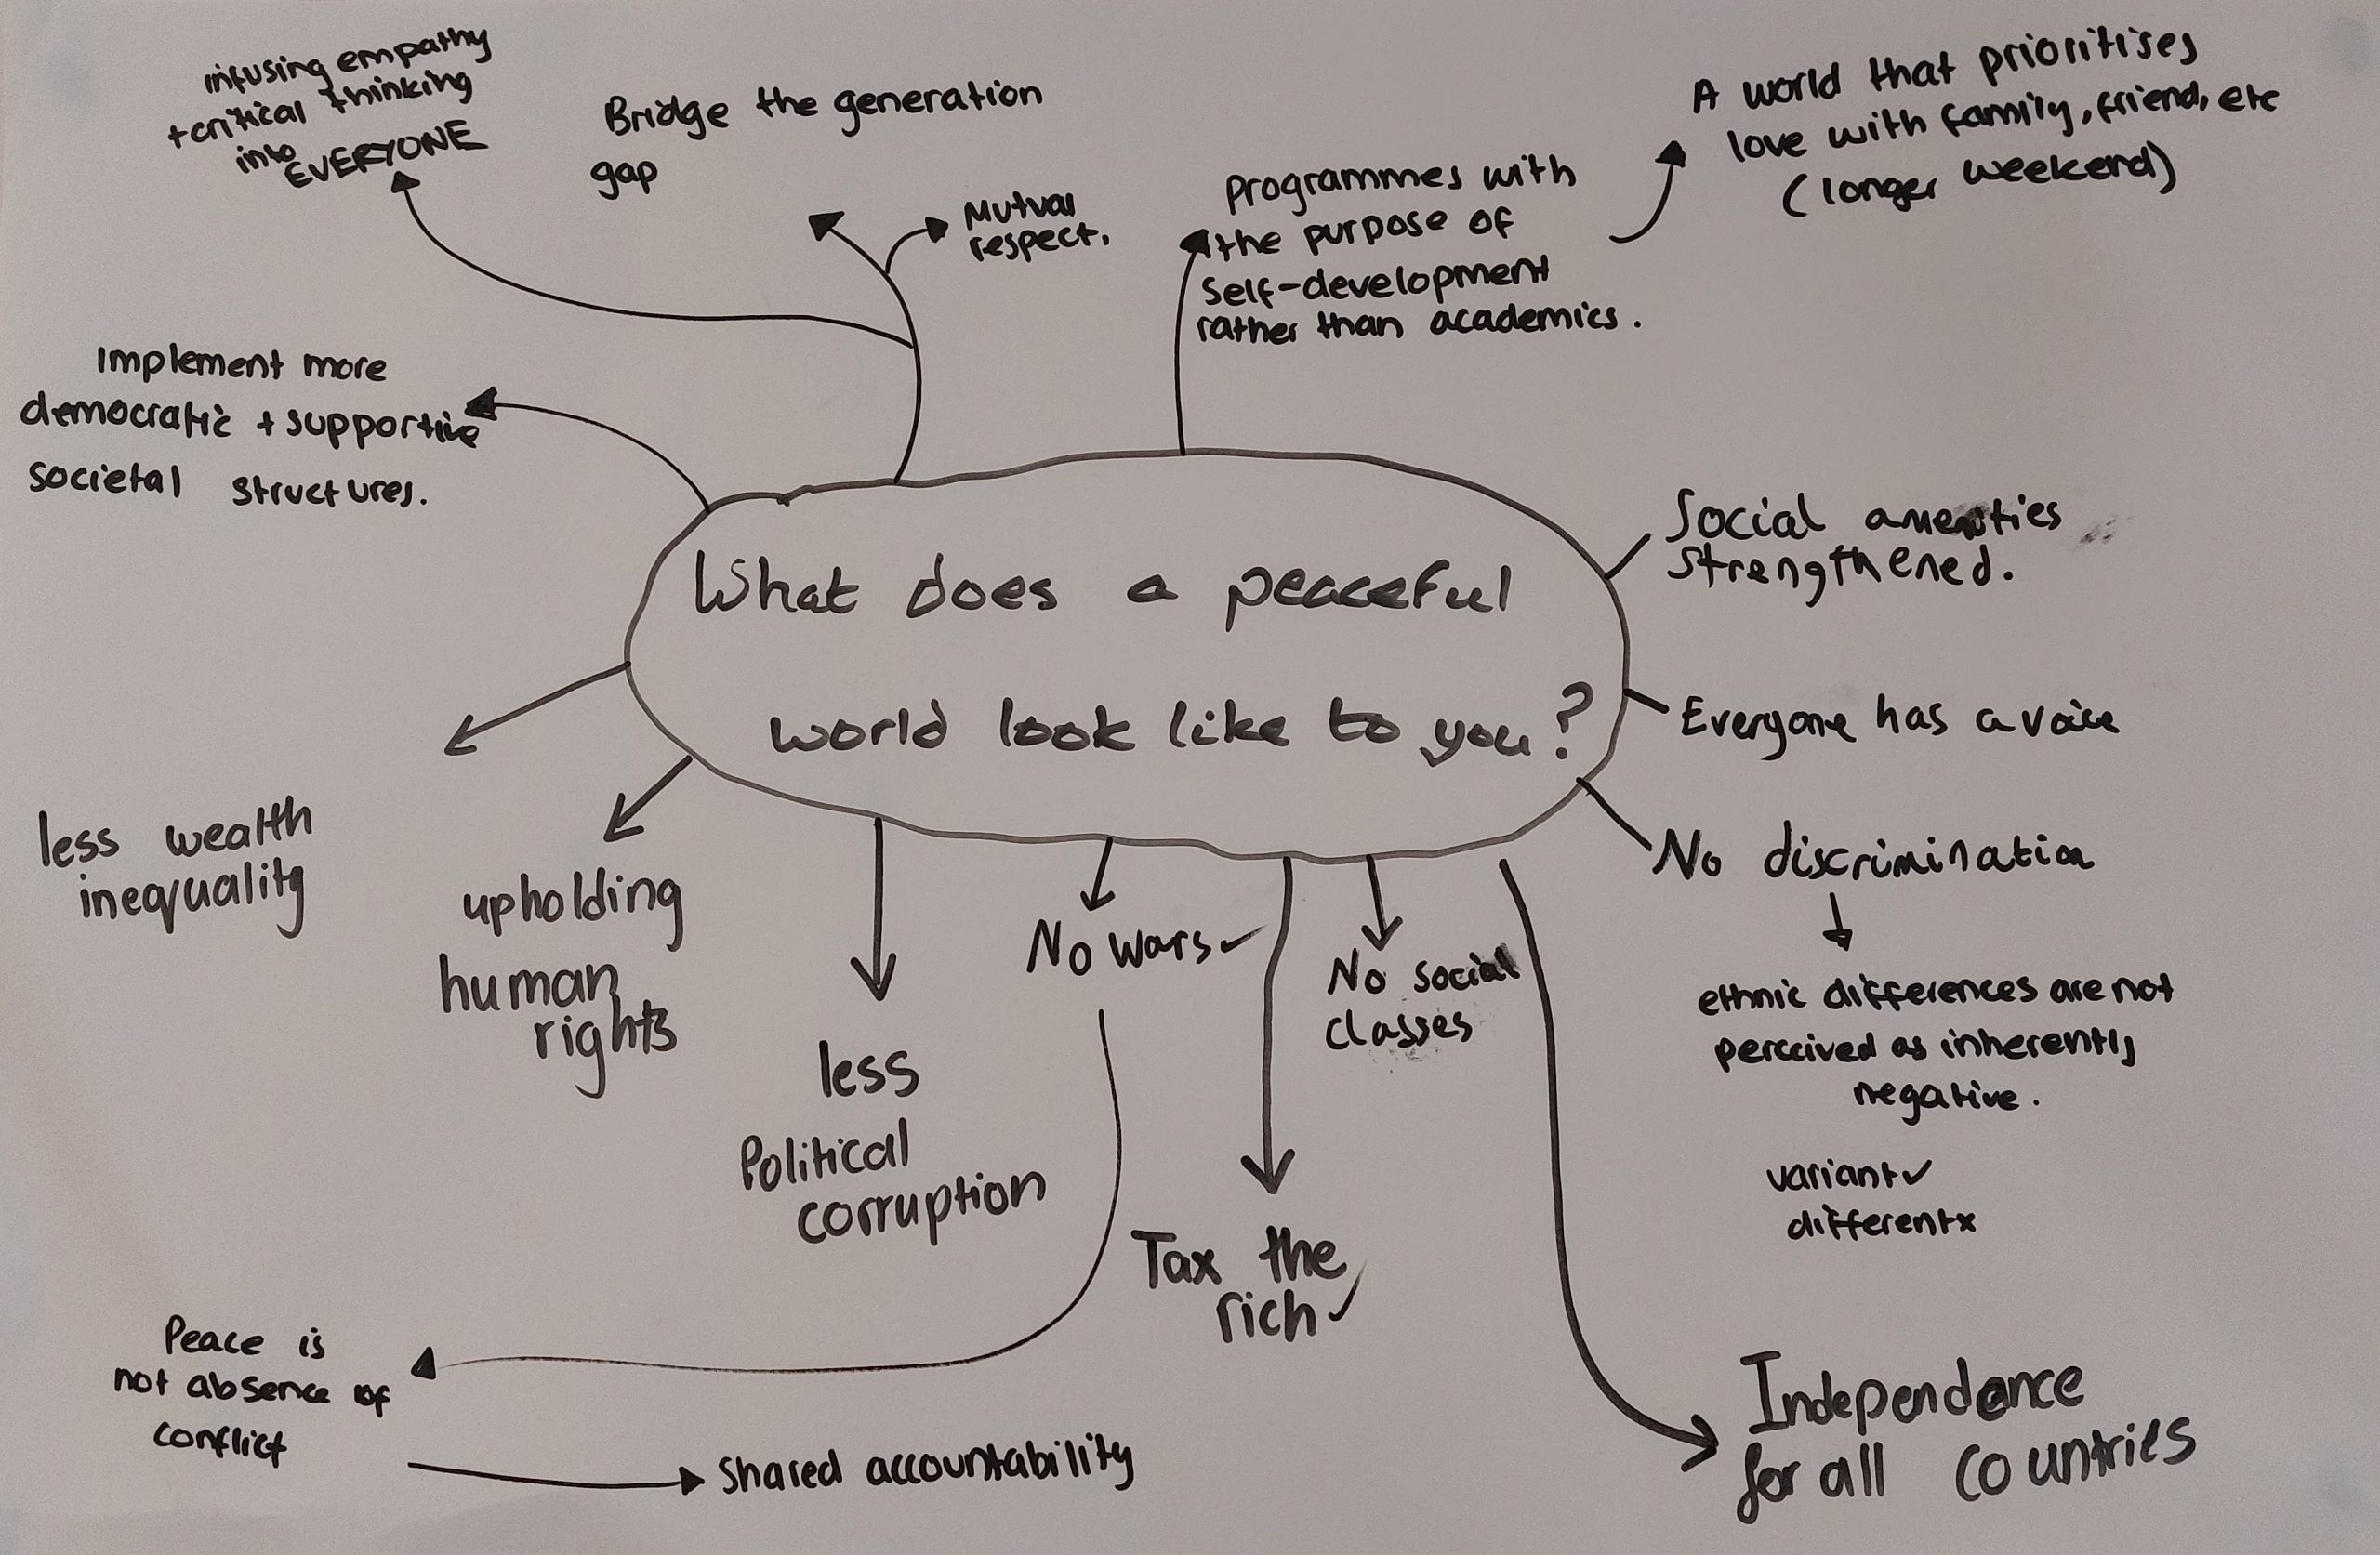 infusing empathy
+critical thinking
into
EVERYONE
Bridge the generation
gap
Mutual
respect.
Programmes with
the purpose of
self-development
rather than academics.
A world that prioritises
love with family, friend, etc
(longer weekend)
Implement more
democratic + supportive
societal structures.
What does a peaceful
world look like to you?
Social amenities
strengthened.
Everyone has a voice
No discrimination
ethnic differences are not
perceived as inherently
negative.
variant✓
different×
less wealth
inequality
upholding
human
rights
less
Political
corruption
No wars✓
Tax the
rich✓
No social
classes
Independence
for all countries
Peace is
not absence of
conflict
Shared accountability